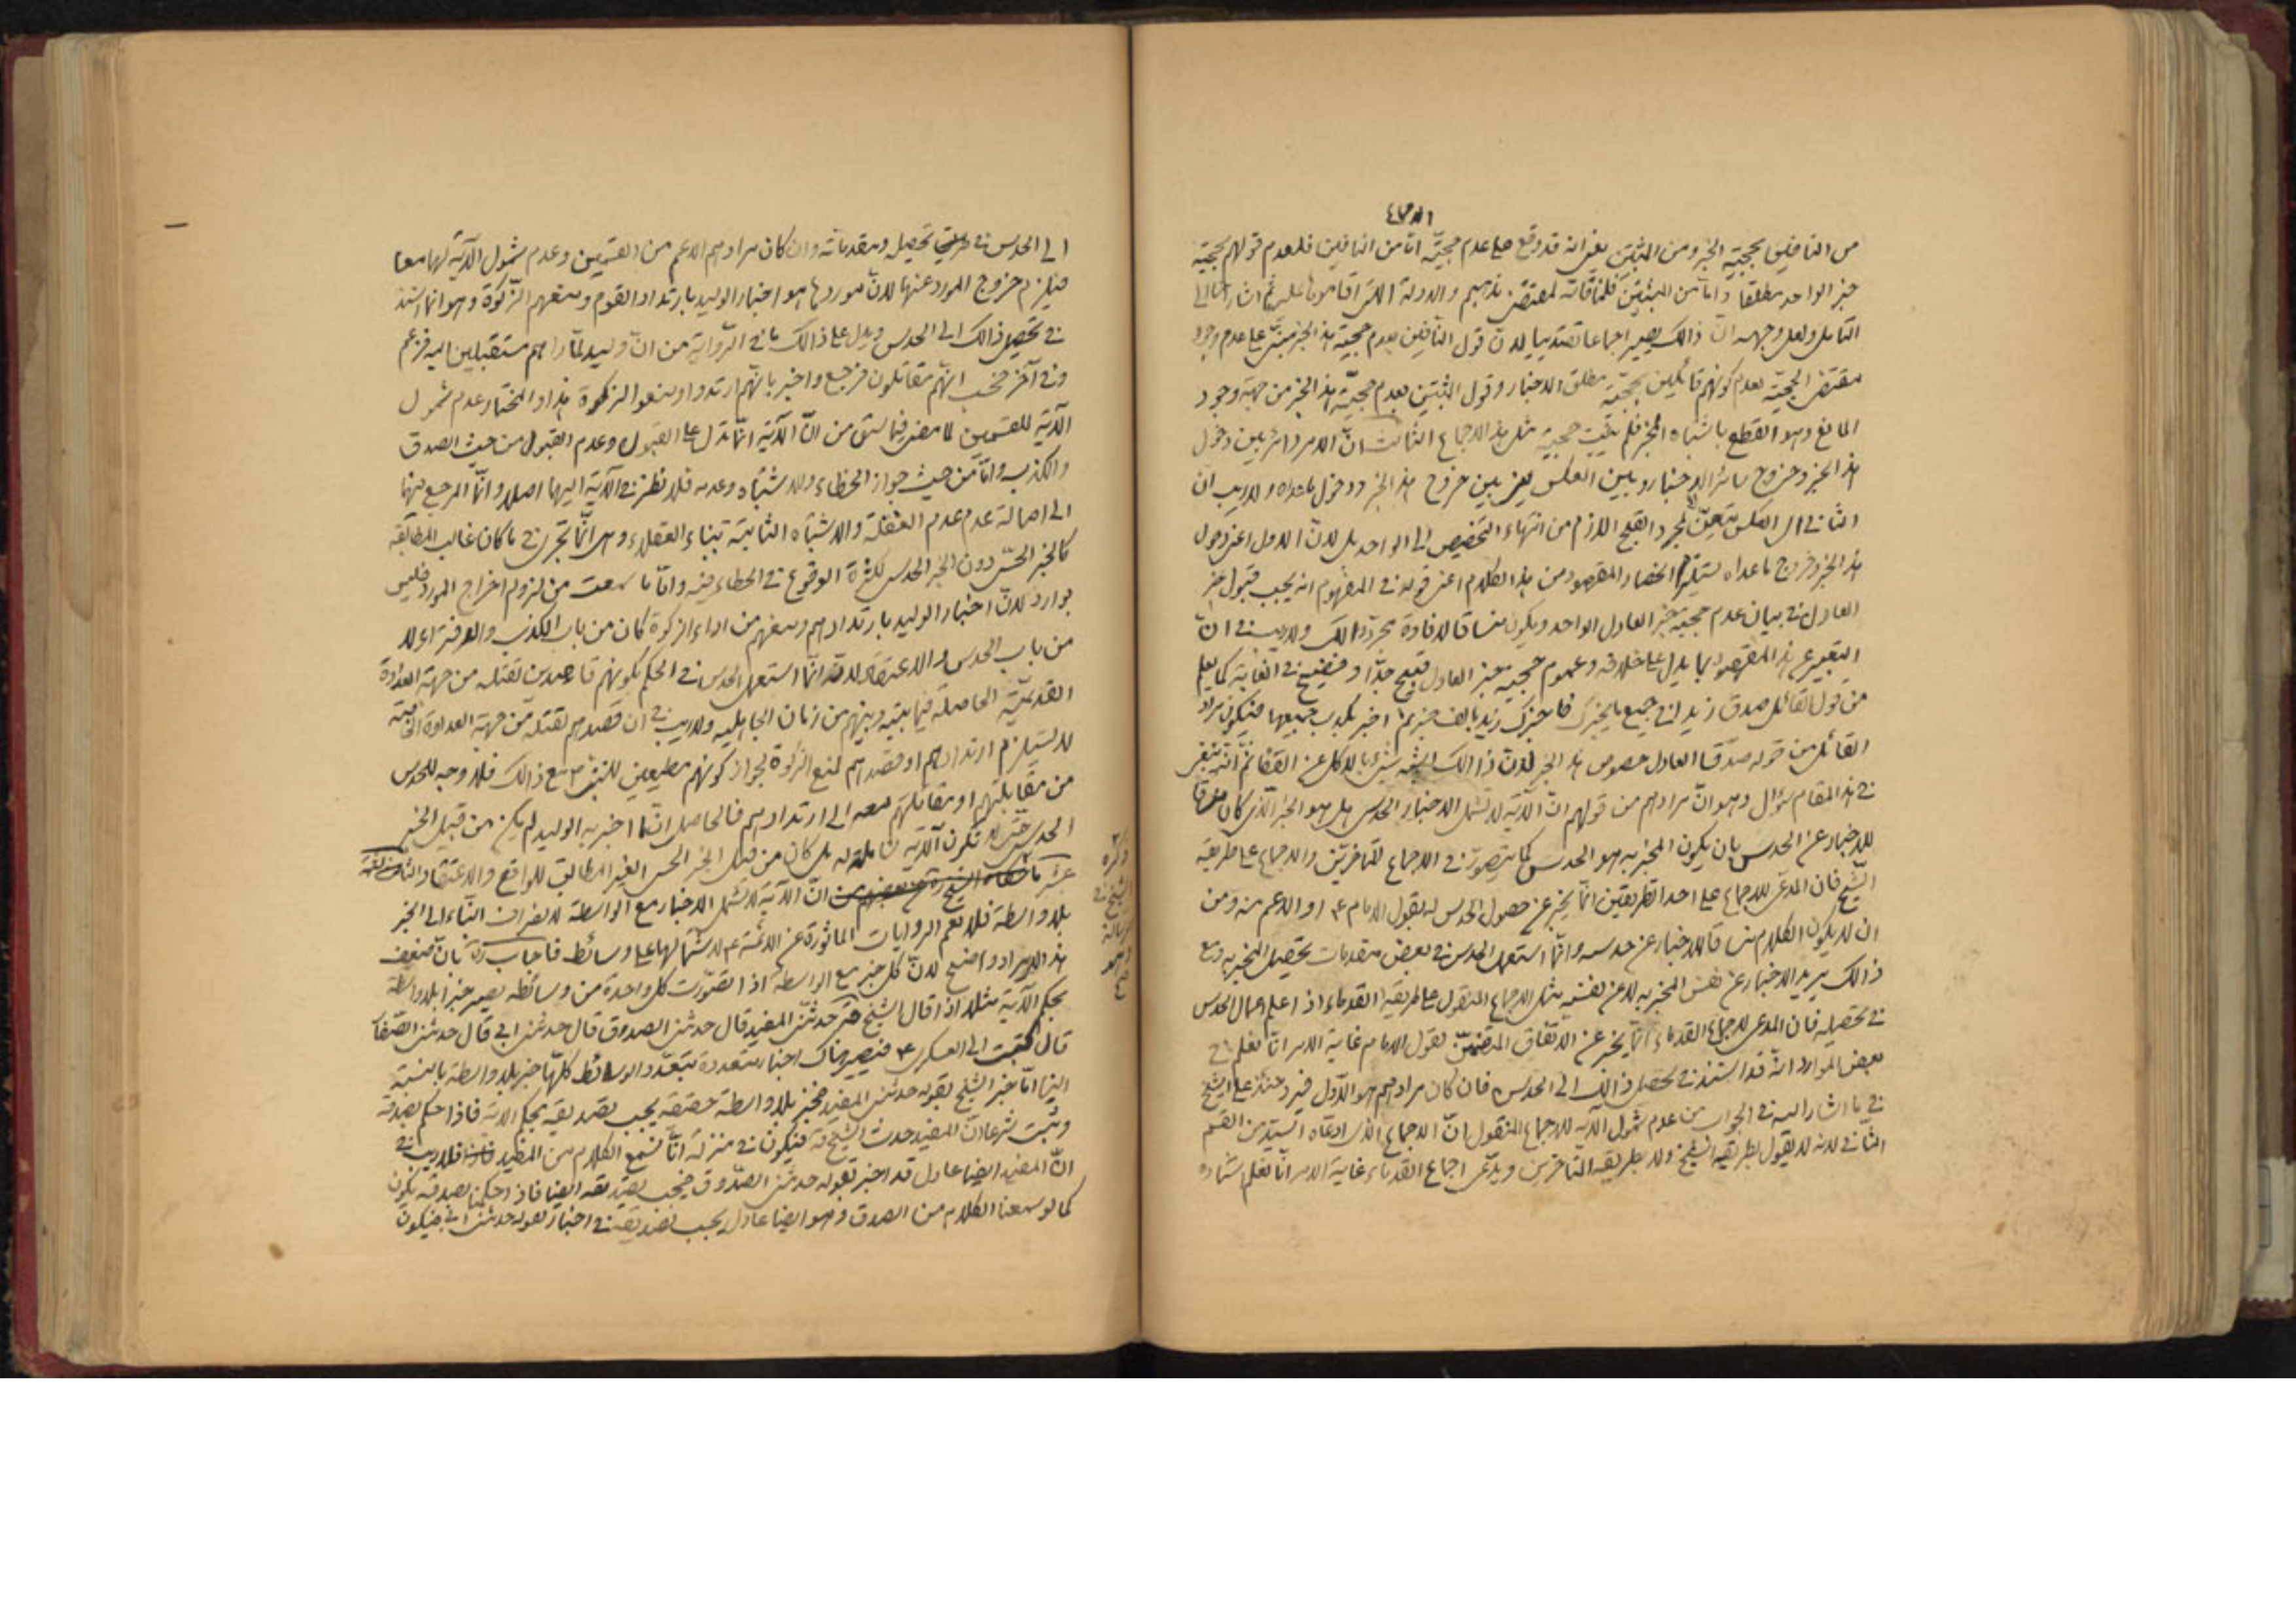 الاجماع
من النافين بحجية الخبر ومن المثبتين يعني انه قد وقع على عدم حجيته اما من النافين فلعدم قولهم بحجية
خبر الواحد مطلقا واما من المثبتين فلمنافاته لمقتضى مذهبهم والادلة التي اقاموها عليه ثم اشار الى
التامل ولعل وجهه ان ذالك يصير اجماعا تقييديا لان قول النافين بعدم حجية هذا الخبر مبتنى على عدم وجود
مقتضى الحجية لعدم كونهم قائلين بحجية مطلق الاخبار وقول المثبتين بعدم حجية هذا الخبر من جهة وجود
المانع وهو القطع باشتباه المخبر فلم يثبت حجية مثل هذا الاجماع الثالث ان الامر دائر بين دخول
هذا الخبر وخروج سائر الاخبار وبين العكس يعني بين خروج هذا الخبر ودخول ماعداه ولاريب ان
الثاني اى العكس متعين لا لمجرد القبح اللازم من انتهاء التخصيص الى الواحد بل لان الاول اعني دخول
هذا الخبر وخروج ماعداه يستلزم انحصار المقصود من هذا الكلام اعني قوله في المفهوم انه يجب قبول خبر
العادل في بيان عدم حجية خبر العادل الواحد ويكون مساقا لافادة مجرد ذالك ولاريب في ان
التعبير عن هذا المقصود بما يدل على خلافه وعموم حجية خبر العادل قبيح جدا وفضيح في الغاية كما يعلم
من قول القائل صدق زيدا في جميع ما يخبرك فاخبرك زيد بالف خبر ثم اخبر بكذب جميعها فيكون مراد
القائل من قوله صدق العادل خصوص هذا الخبر لان ذالك اشبه شيء بالاكل عن القفا ثم انه ينبغي
في هذا المقام سؤال وهو ان مرادهم من قولهم ان الآية لا تشمل الاخبار الحدسي هل هو الخبر الذى كان مساقا
للاخبار عن الحدس بان يكون المخبر به هو الحدس كما يتصور في الاجماع للمتاخرين والاجماع على طريقة
الشيخ فان المدعي للاجماع على احد الطريقين انما يخبر عن حصول الحدس له بقول الامام ع او الاعم منه ومن
ان لا يكون الكلام مساقا للاخبار عن حدسه وانما استعمل الحدس في بعض مقدمات تحصيل المخبر به ومع
ذالك يريد الاخبار عن نفس المخبر به لا عن نفسه مثل الاجماع المنقول على طريقة القدماء اذ اعلم اعمال الحدس
في تحصيله فان المدعي لاجماع القدماء انما يخبر عن الاتفاق المتضمن لقول الامام غاية الامر انا نعلم في
بعض الموارد انه قد استند في تحصيل ذالك الى الحدس فان كان مرادهم هو الاول فيرد حينئذ على الشيخ
في ما اشار اليه في الجواب من عدم شمول الآية للاجماع المنقول ان الاجماع الذى ادعاه السيد من القسم
الثاني لانه لا يقول بطريقة الشيخ ولا بطريقة المتاخرين ويدعي اجماع القدماء غاية الامر انا نعلم استناده
الى الحدس في طريق تحصيله ومقدماته وان كان مرادهم الاعم من القسمين وعدم شمول الآية لهما معا
فيلزم خروج المورد عنها لان موردها هو اخبار الوليد بارتداد القوم ومنعهم الزكوة وهو انما استند
في تحصيل ذالك الى الحدس ويدل على ذالك ما في الرواية من ان وليد لما راهم مستقبلين اليه فزعم
وفي آخر فحسب انهم مقاتلون فرجع واخبر بانهم ارتدوا ومنعوا الزكوة هذا والمختار عدم شمول
الآية للقسمين لما مضى فيما سبق من ان الآية انما تدل على القبول وعدم القبول من حيث الصدق
والكذب واما من حيث جواز الخطاء والاشتباه وعدمه فلا نظر في الآية اليها اصلا وانما المرجع فيها
الى اصالة عدم الغفلة والاشتباه الثابتة ببناء العقلاء وهي انما تجرى في ما كان غالب المطابقة
كالخبر الحسي دون الخبر الحدسي لكثرة الوقوع في الخطاء فيه واما ما سمعت من لزوم اخراج المورد فليس
بوارد لان اخبار الوليد بارتدادهم ومنعهم من اداء الزكوة كان من باب الكذب والفرية اولا لا
من باب الحدس والاعتقاد لانه انما استعمل الحدس في الحكم بكونهم قاصدين لقتله من جهة العداوة
القديمة الحاصلة فيما بينه وبينهم من زمان الجاهلية ولاريب في ان قصدهم لقتله من جهة العداوة الخاصة
لا يستلزم ارتدادهم او قصدهم لمنع الزكوة لجواز كونهم مطيعين للنبي ص مع ذالك فلا وجه للحدس
من مقابلتهم او مقاتلتهم معه الى ارتدادهم فالحاصل ان ما اخبر به الوليد لم يكن من قبيل الخبر
الحدسي حتى لا تكون الآية شاملة له بل كان من قبيل الخبر الحسي الغير المطابق للواقع والاعتقاد الثامن
عشر ما ذكره الشيخ في رسالة ان الآية لا تشمل الاخبار مع الواسطة لانصراف النباء الى الخبر
بلا واسطة فلا تعم الروايات الماثورة عن الائمة ع لاشتمالها على وسائط فاجاب ره بان ضعف
هذا الايراد واضح لان كل خبر مع الواسطة اذا تصورت كل واحدة من وسائطه يصير خبرا بلا واسطة
بحكم الآية مثلا اذا قال الشيخ حدثني المفيد قال حدثني الصدوق قال حدثني ابي قال حدثني الصفار
قال كتبت الى العسكرى ع فيصير هناك اخبار متعددة بتعدد الوسائط كلها خبر بلا واسطة بالنسبة
الينا اما خبر الشيخ بقوله حدثني المفيد فخبر بلا واسطة حقيقة يجب تصديقه بحكم الآية فاذا حكم بصدقه
وثبت شرعا ان المفيد حدث الشيخ فيكون في منزلة انا نسمع الكلام من المفيد فلاريب في
ان المفيد ايضا عادل قد اخبر بقوله حدثني الصدوق فيجب تصديقه ايضا فاذا حكمنا بصدقه يكون
كما لو سمعنا الكلام من الصدوق وهو ايضا عادل يجب تصديقه في اخباره بقوله حدثني ابي فيكون